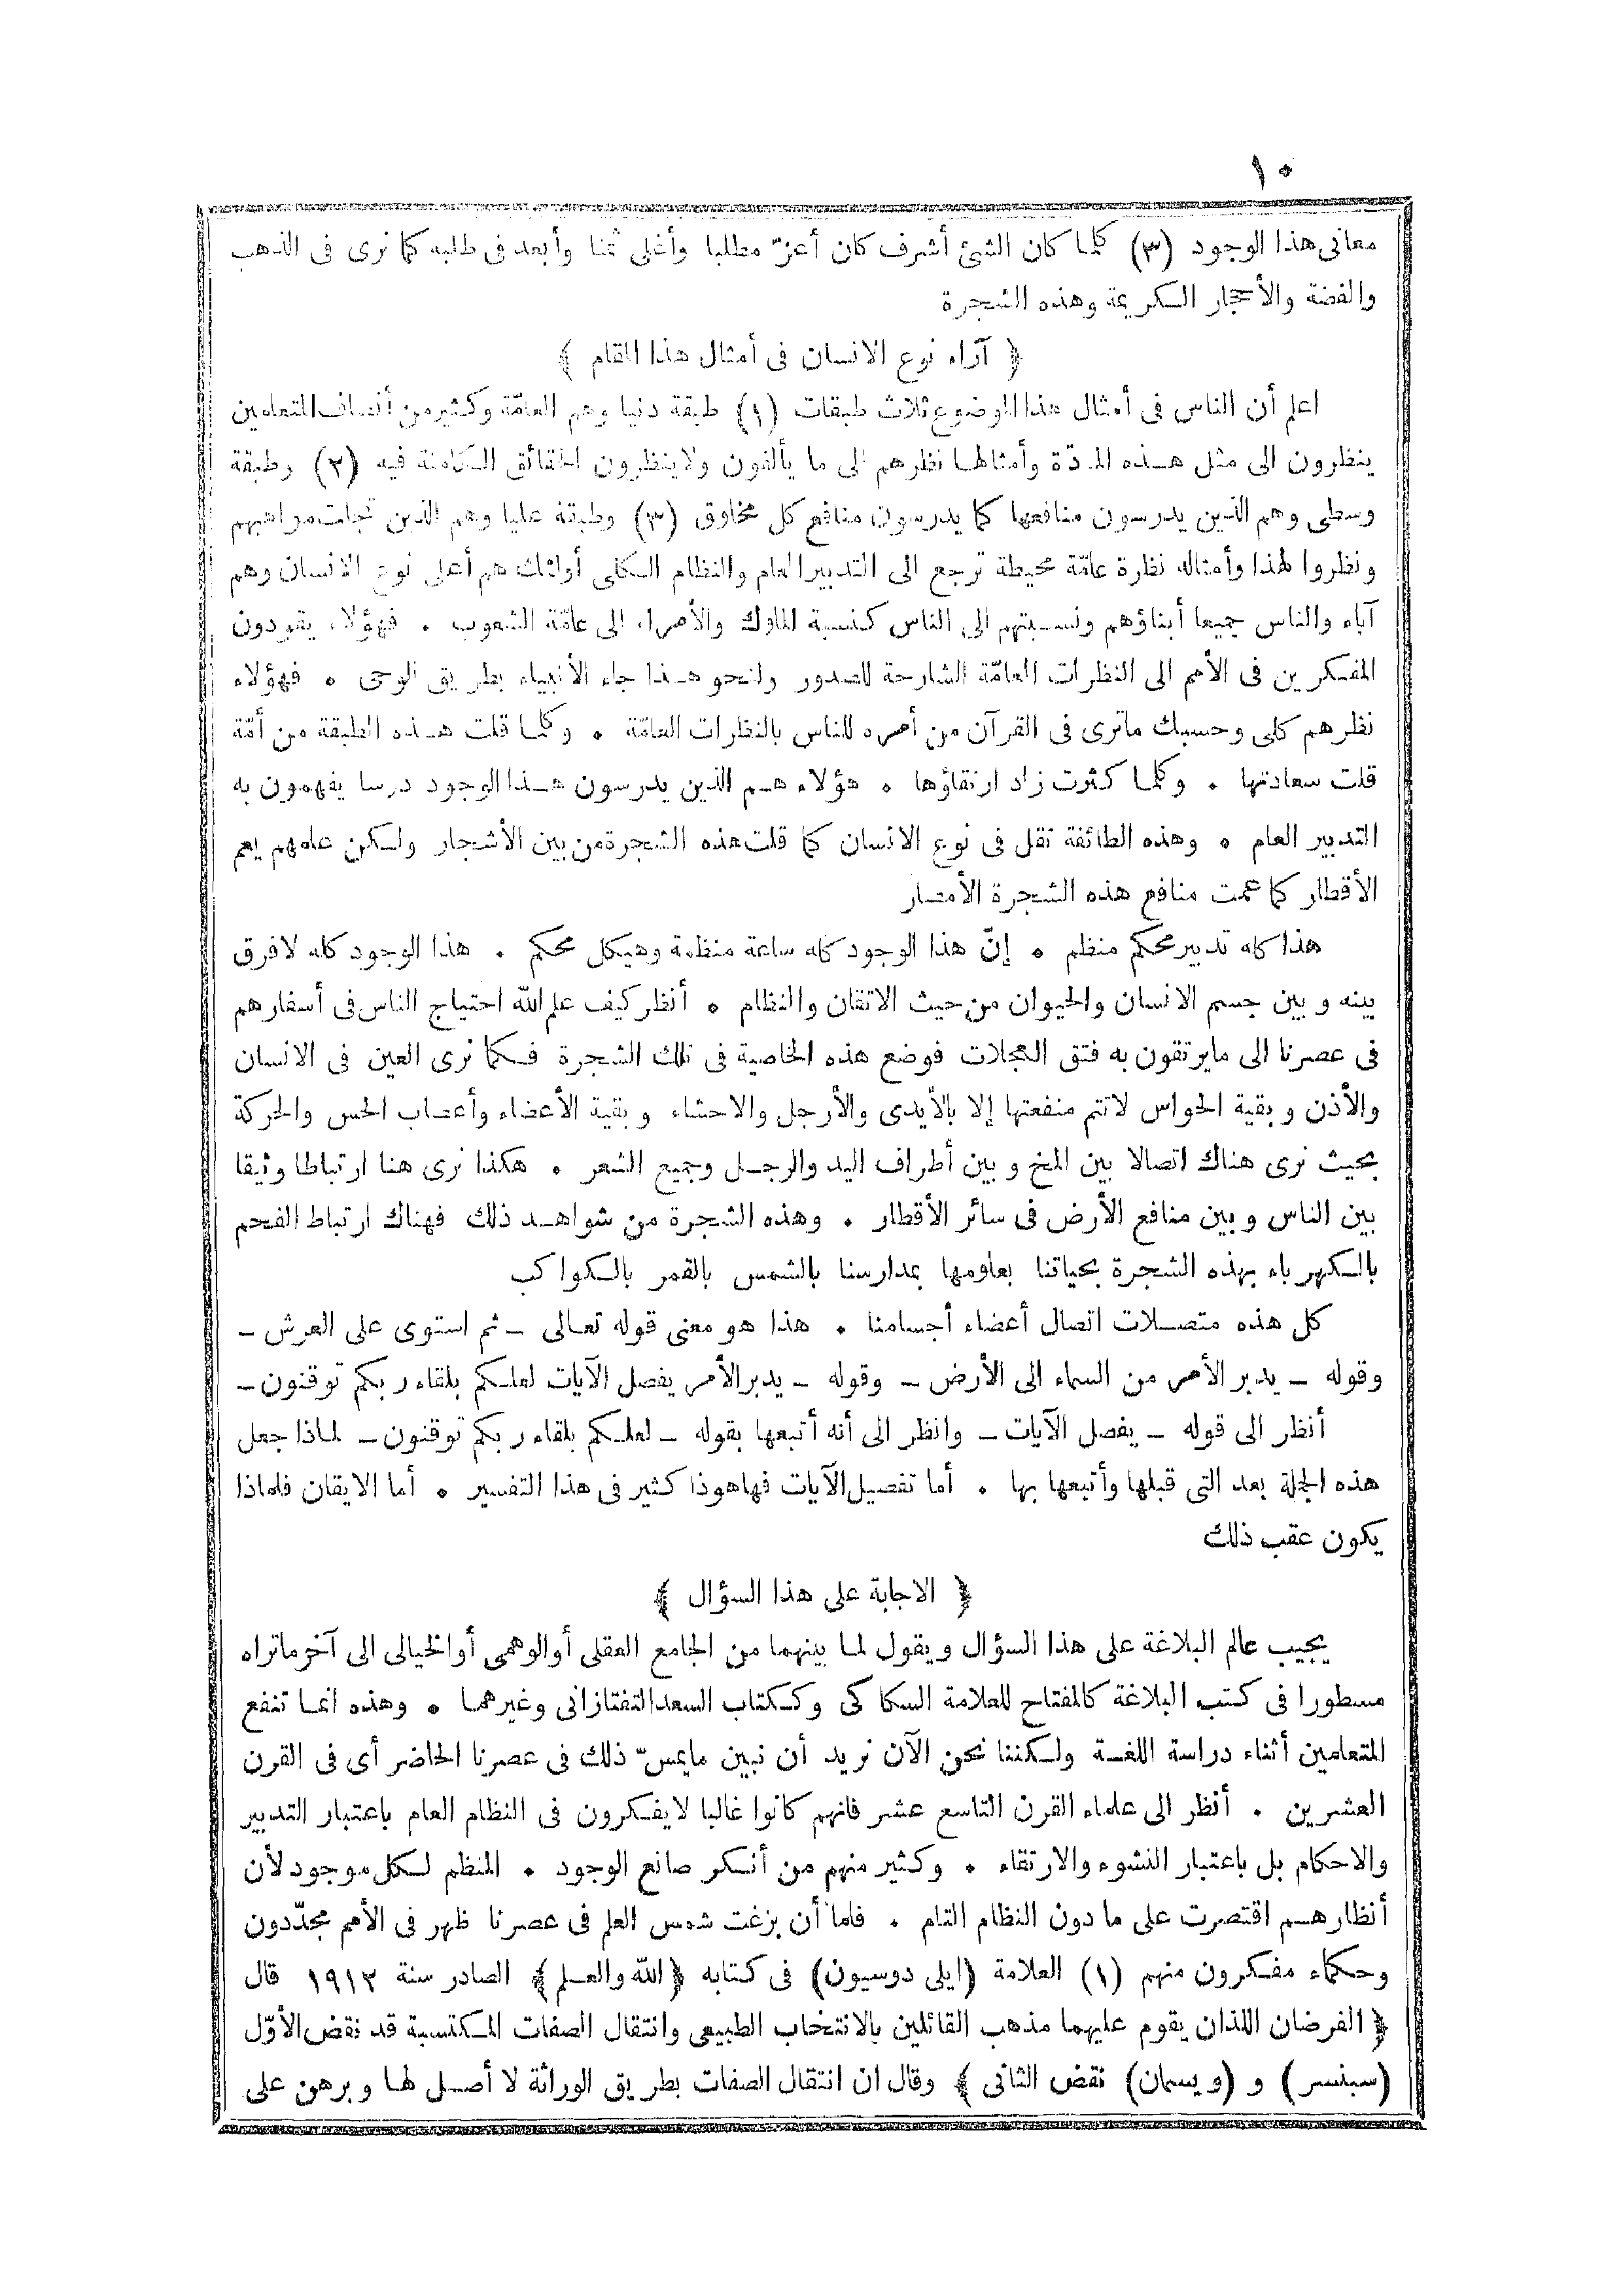 ١٠
معانى هذا الوجود (٣) كلما كان الشئ أشرف كان أعزّ مطلبا وأغلى ثمنا وأبعد فى طلبه كما نرى فى الذهب
والفضة والأحجار الكريمة وهذه الشجرة
﴿ آراء نوع الانسان فى أمثال هذا المقام ﴾
اعلم أن الناس فى أمثال هذا الموضوع ثلاث طبقات (١) طبقة دنيا وهم العامّة وكثير من أنصاف المتعلمين
ينظرون الى مثل هذه المادّة وأمثالها نظرهم الى ما يألفون ولا ينظرون الحقائق الكامنة فيه (٢) وطبقة
وسطى وهم الذين يدرسون منافعها كما يدرسون منافع كل مخلوق (٣) وطبقة عليا وهم الذين تجلت مواهبهم
ونظروا لهذا وأمثاله نظرة عامّة محيطة ترجع الى التدبير العام والنظام الكلى أولئك هم أعلى نوع الانسان وهم
آباء والناس جميعا أبناؤهم ونسبتهم الى الناس كنسبة الملوك والأمراء الى عامّة الشعوب . فهؤلاء يقودون
المفكرين فى الأمم الى النظرات العامّة الشارحة للصدور ولنحو هذا جاء الأنبياء بطريق الوحى . فهؤلاء
نظرهم كلى وحسبك ماترى فى القرآن من أمره للناس بالنظرات العامّة . وكلما قلت هذه الطبقة من أمّة
قلت سعادتها . وكلما كثرت زاد ارتقاؤها . هؤلاء هم الذين يدرسون هذا الوجود درسا يفهمون به
التدبير العام . وهذه الطائفة تقل فى نوع الانسان كما قلت هذه الشجرة من بين الأشجار ولكن علمهم يعم
الأقطار كما عمت منافع هذه الشجرة الأمصار
هذا كله تدبير محكم منظم . إنّ هذا الوجود كله ساعة منظمة وهيكل محكم . هذا الوجود كله لافرق
بينه وبين جسم الانسان والحيوان من حيث الاتقان والنظام . أنظر كيف علم الله احتياج الناس فى أسفارهم
فى عصرنا الى مايرتقون به فتق العجلات فوضع هذه الخاصية فى تلك الشجرة فكما نرى العين فى الانسان
والأذن وبقية الحواس لاتتم منفعتها إلا بالأيدى والأرجل والاحشاء وبقية الأعضاء وأعصاب الحس والحركة
بحيث نرى هناك اتصالا بين المخ وبين أطراف اليد والرجل وجميع الشعر . هكذا نرى هنا ارتباطا وثيقا
بين الناس وبين منافع الأرض فى سائر الأقطار . وهذه الشجرة من شواهد ذلك فهناك ارتباط الفحم
بالكهرباء بهذه الشجرة بحياتنا بعلومها بمدارسنا بالشمس بالقمر بالكواكب
كل هذه متصلات اتصال أعضاء أجسامنا . هذا هو معنى قوله تعالى ــ ثم استوى على العرش ــ
وقوله ــ يدبر الأمر من السماء الى الأرض ــ وقوله ــ يدبر الأمر يفصل الآيات لعلكم بلقاء ربكم توقنون ــ
أنظر الى قوله ــ يفصل الآيات ــ وانظر الى أنه أتبعها بقوله ــ لعلكم بلقاء ربكم توقنون ــ لماذا جعل
هذه الجملة بعد التى قبلها وأتبعها بها . أما تفصيل الآيات فهاهوذا كثير فى هذا التفسير . أما الايقان فلماذا
يكون عقب ذلك
﴿ الاجابة على هذا السؤال ﴾
يجيب عالم البلاغة على هذا السؤال ويقول لما بينهما من الجامع العقلى أو الوهمى أو الخيالى الى آخر ماتراه
مسطورا فى كتب البلاغة كالمفتاح للعلامة السكاكى وككتاب السعد التفتازانى وغيرهما . وهذه انما تنفع
المتعلمين أثناء دراسة اللغة ولكننا نحن الآن نريد أن نبين مايمسّ ذلك فى عصرنا الحاضر أى فى القرن
العشرين . أنظر الى علماء القرن التاسع عشر فانهم كانوا غالبا لايفكرون فى النظام العام باعتبار التدبير
والاحكام بل باعتبار النشوء والارتقاء . وكثير منهم من أنكر صانع الوجود . المنظم لكل موجود لأن
أنظارهم اقتصرت على ما دون النظام التام . فلما أن بزغت شمس العلم فى عصرنا ظهر فى الأمم مجدّدون
وحكماء مفكرون منهم (١) العلامة (ايلى دوسيون) فى كتابه ﴿الله والعلم﴾ الصادر سنة ١٩١٢ قال
﴿ الفرضان اللذان يقوم عليهما مذهب القائلين بالانتخاب الطبيعى وانتقال الصفات المكتسبة قد نقض الأوّل
(سبنسر) و (ويسمان) نقض الثانى ﴾ وقال ان انتقال الصفات بطريق الوراثة لا أصل لها وبرهن على